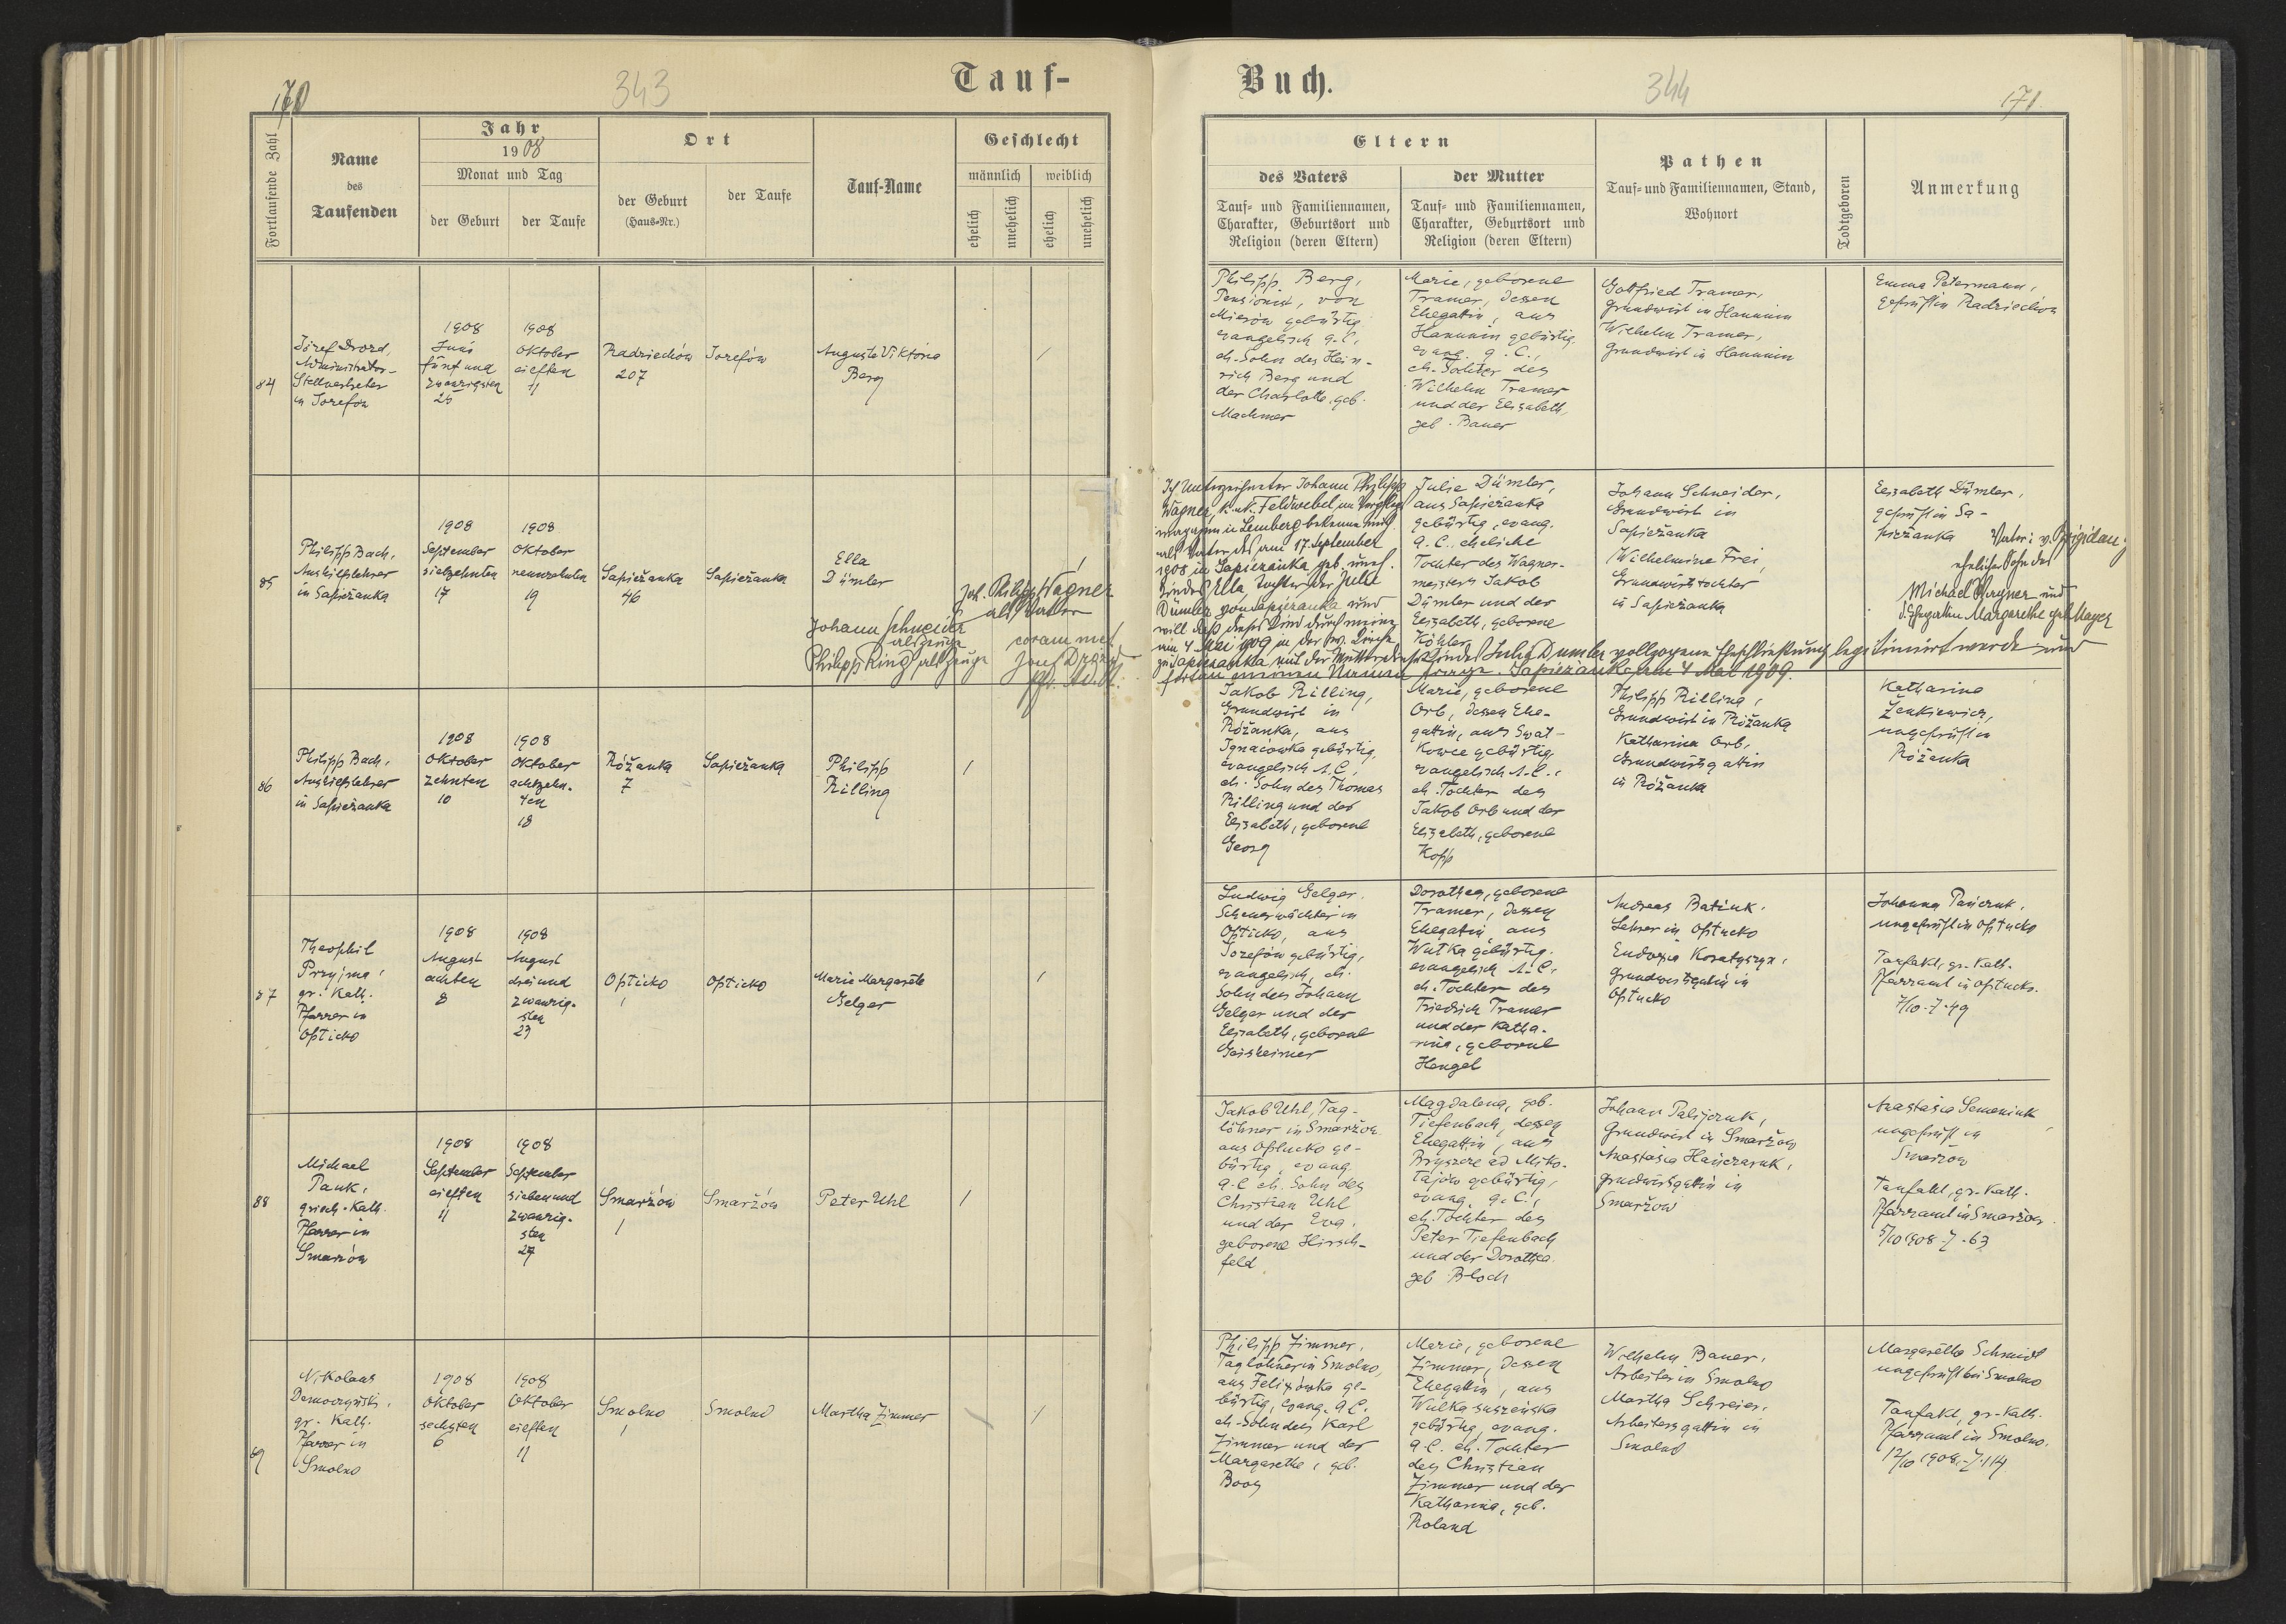 170
343
Tauf-
Fortlaufende Zahl
Name
des
Taufenden
Jahr
1908
Monat und Tag
der Geburt
der Taufe
Ort
der Geburt
(Haus-Nr.)
der Taufe
Tauf-Name
Geschlecht
männlich
weiblich
ehelich
unehelich
ehelich
unehelich
84
Józef Drozd,
Administrator-
Stellvertreter
in Josefów
1908
Juni
fünf und
zwanzigsten
25
1908
Oktober
eilften
11
Radziechów
207
Josefów
Auguste Viktoria
Berg
85
Philipp Bach,
Aushilfslehrer
in Sapieżanka
1908
September
siebzehnten
17
1908
Oktober
neunzehnten
19
Sapieżanka
46
Sapieżanka
Ella
Dümler
Joh. Philipp Wagner
als Vater
Johann Schneider
als Zeuge
coram me
Philipp Ring als Zeuge
86
Philipp Bach,
Aushilfslehrer
in Sapieżanka
1908
Oktober
zehnten
10
1908
Oktober
achtzehn-
ten
18
Różanka
7
Sapieżanka
Philipp
Rilling
87
Theophil
Pryjma,
gr. Kath.
Pfarrer in
Opłicko
1908
August
achten
8
1908
August
drei und
zwanzig-
sten
23
Opłicko
1
Opłicko
Marie Margarete
Gelger
88
Michael
Pauk,
griech-Kath.
Pfarrer in
Smarzów
1908
September
eilften
11
1908
September
sieben und
zwanzig-
sten
27
Smarżów
1
Smarżów
Peter Uhl
89
Nikolaus
gr. Kath.
Pfarrer in
Smolno
1908
Oktober
sechsten
6
1908
Oktober
eilften
11
Smolno
1
Smolno
Martha Zimmer
Buch.
344
171
Eltern
des Vaters
der Mutter
Tauf- und Familiennamen,
Charakter, Geburtsort und
Religion (deren Eltern)
Tauf- und Familiennamen,
Charakter, Geburtsort und
Religion (deren Eltern)
Pathen
Tauf- und Familiennamen, Stand,
Wohnort
Todtgeboren
Anmerkung
Philipp Berg,
Pensionist, von
Mierów gebürtig
evangelisch A.C.,
eh. Sohn des Hein-
rich Berg und
der Charlotte, geb.
Machmer
Marie, geborene
Tramer, dessen
Ehegattin, aus
Hanunin gebürtig,
evang. A.C.,
eh. Tochter des
Wilhelm Tramer
und der Elisabeth,
geb. Bauer
Gottfried Tramer,
Grundwirt in Hanunin
Wilhelm Tramer,
Grundwirt in Hanunin
Emma Petermann,
geprüft in Radziechów
Ich Unterzeichneter Johann Philipp
Wagner, k.u.k. Feldwebel im Verpflegs
magazin in Lemberg bekenne mich
als Vater des am 17. September
1908 in Sapieżanka geb. uneh.
Kindes Ella, Tochter der Julie
Dümler von Sapieżanka und
will daß dieses Kind durch meine
am 4 Mai 1909 in der ev. Kirche
zu Sapieżanka mit der Mutter dieses Kindes Julie Dümler vollzogene Eheschließung legitimiert werde und
fortan meinen Namen trage. Sapieżanka, am 4 Mai 1909.
Julie Dümler,
aus Sapieżanka
gebürtig, evang.
A.C. eheliche
Tochter des Wagner-
meisters Jakob
Dümler und der
Elisabeth, geborene
Köhler
Johann Schneider,
Grundwirt in
Sapieżanka
Wilhelmine Frei,
Grundwirtstochter
in Sapieżanka
Elisabeth Dümler,
geprüft in Sa-
pieżanka
Vater: v. Brigidau,
ehelicher Sohn des
Michael Wagner und
d. Ehegattin Margarethe geb. Mayer
Jakob Rilling,
Grundwirt in
Różanka, aus
Ignacówka gebürtig,
evangelisch A.C.,
eh. Sohn des Thomas
Rilling und der
Elisabeth, geborene
Georg
Marie, geborene
Orb, dessen Ehe-
gattin, aus Swat-
kowce gebürtig,
evangelisch A.C.,
eh. Tochter des
Jakob Orb und der
Elisabeth, geborene
Kopp
Philipp Rilling,
Grundwirt in Różanka
Katharina Orb,
Grundwirtsgattin
in Różanka
Katharina
Zenkiewicz,
ungeprüft in
Różanka
Ludwig Gelger,
in
Opłicko, aus
Josefów gebürtig,
evangelisch, eh.
Sohn des Johann
Gelger und der
Elisabeth, geborene
Geisheimer
Dorothea, geborene
Tramer, dessen
Ehegattin aus
Wulka gebürtig,
evangelisch A.C.,
eh. Tochter des
Friedrich Tramer
und der Katha-
rina, geborene
Hengel
Andreas Batiuk,
Lehrer in Opłucko
Grundwirtsgattin in
Opłucko
Johanna Pańczuk,
ungeprüft in Opłucko
Taufakt, gr. Kath.
Pfarramt in Opłucko.
7/10-7-49
Jakob Uhl, Tag-
löhner in Smarżów
aus Opłucko ge-
bürtig, evang.
A.C. eh. Sohn des
Christian Uhl
und der Eva,
geborene Hirsch-
feld
Magdalena, geb.
Tiefenbach, dessen
Ehegattin, aus
Bryszcze ad Miko-
łajów gebürtig,
evang. A.C.,
eh. Tochter des
Peter Tiefenbach
und der Dorothea
geb. Bloch
Johann Palijczuk,
Grundwirt in Smarżów
Anastasia Hańczaruk,
Grundwirtsgattin in
Smarżów
Anastasia Semeniuk
ungeprüft in
Smarzow
Taufakt, gr. Kath.
Pfarramt in Smarżów
5/10 1908-7-63
Philipp Zimmer,
Taglöhner in Smolno,
aus Felixówka ge-
bürtig, evang. A.C.
eh. Sohn des Karl
Zimmer und der
Margarethe, geb.
Boog
Marie, geborene
Zimmer, dessen
Ehegattin, aus
Wulka suszeńska
gebürtig, evang.
A.C. eh. Tochter
des Christian
Zimmer und der
Katharina, geb.
Roland
Wilhelm Bauer,
Arbeiter in Smolno
Martha Schreier,
Arbeitersgattin in
Smolno
Margarethe Schmidt
ungeprüft bei Smolno
Taufakt, gr. Kath.
Pfarramt in Smolno.
12/10 1908-7-114